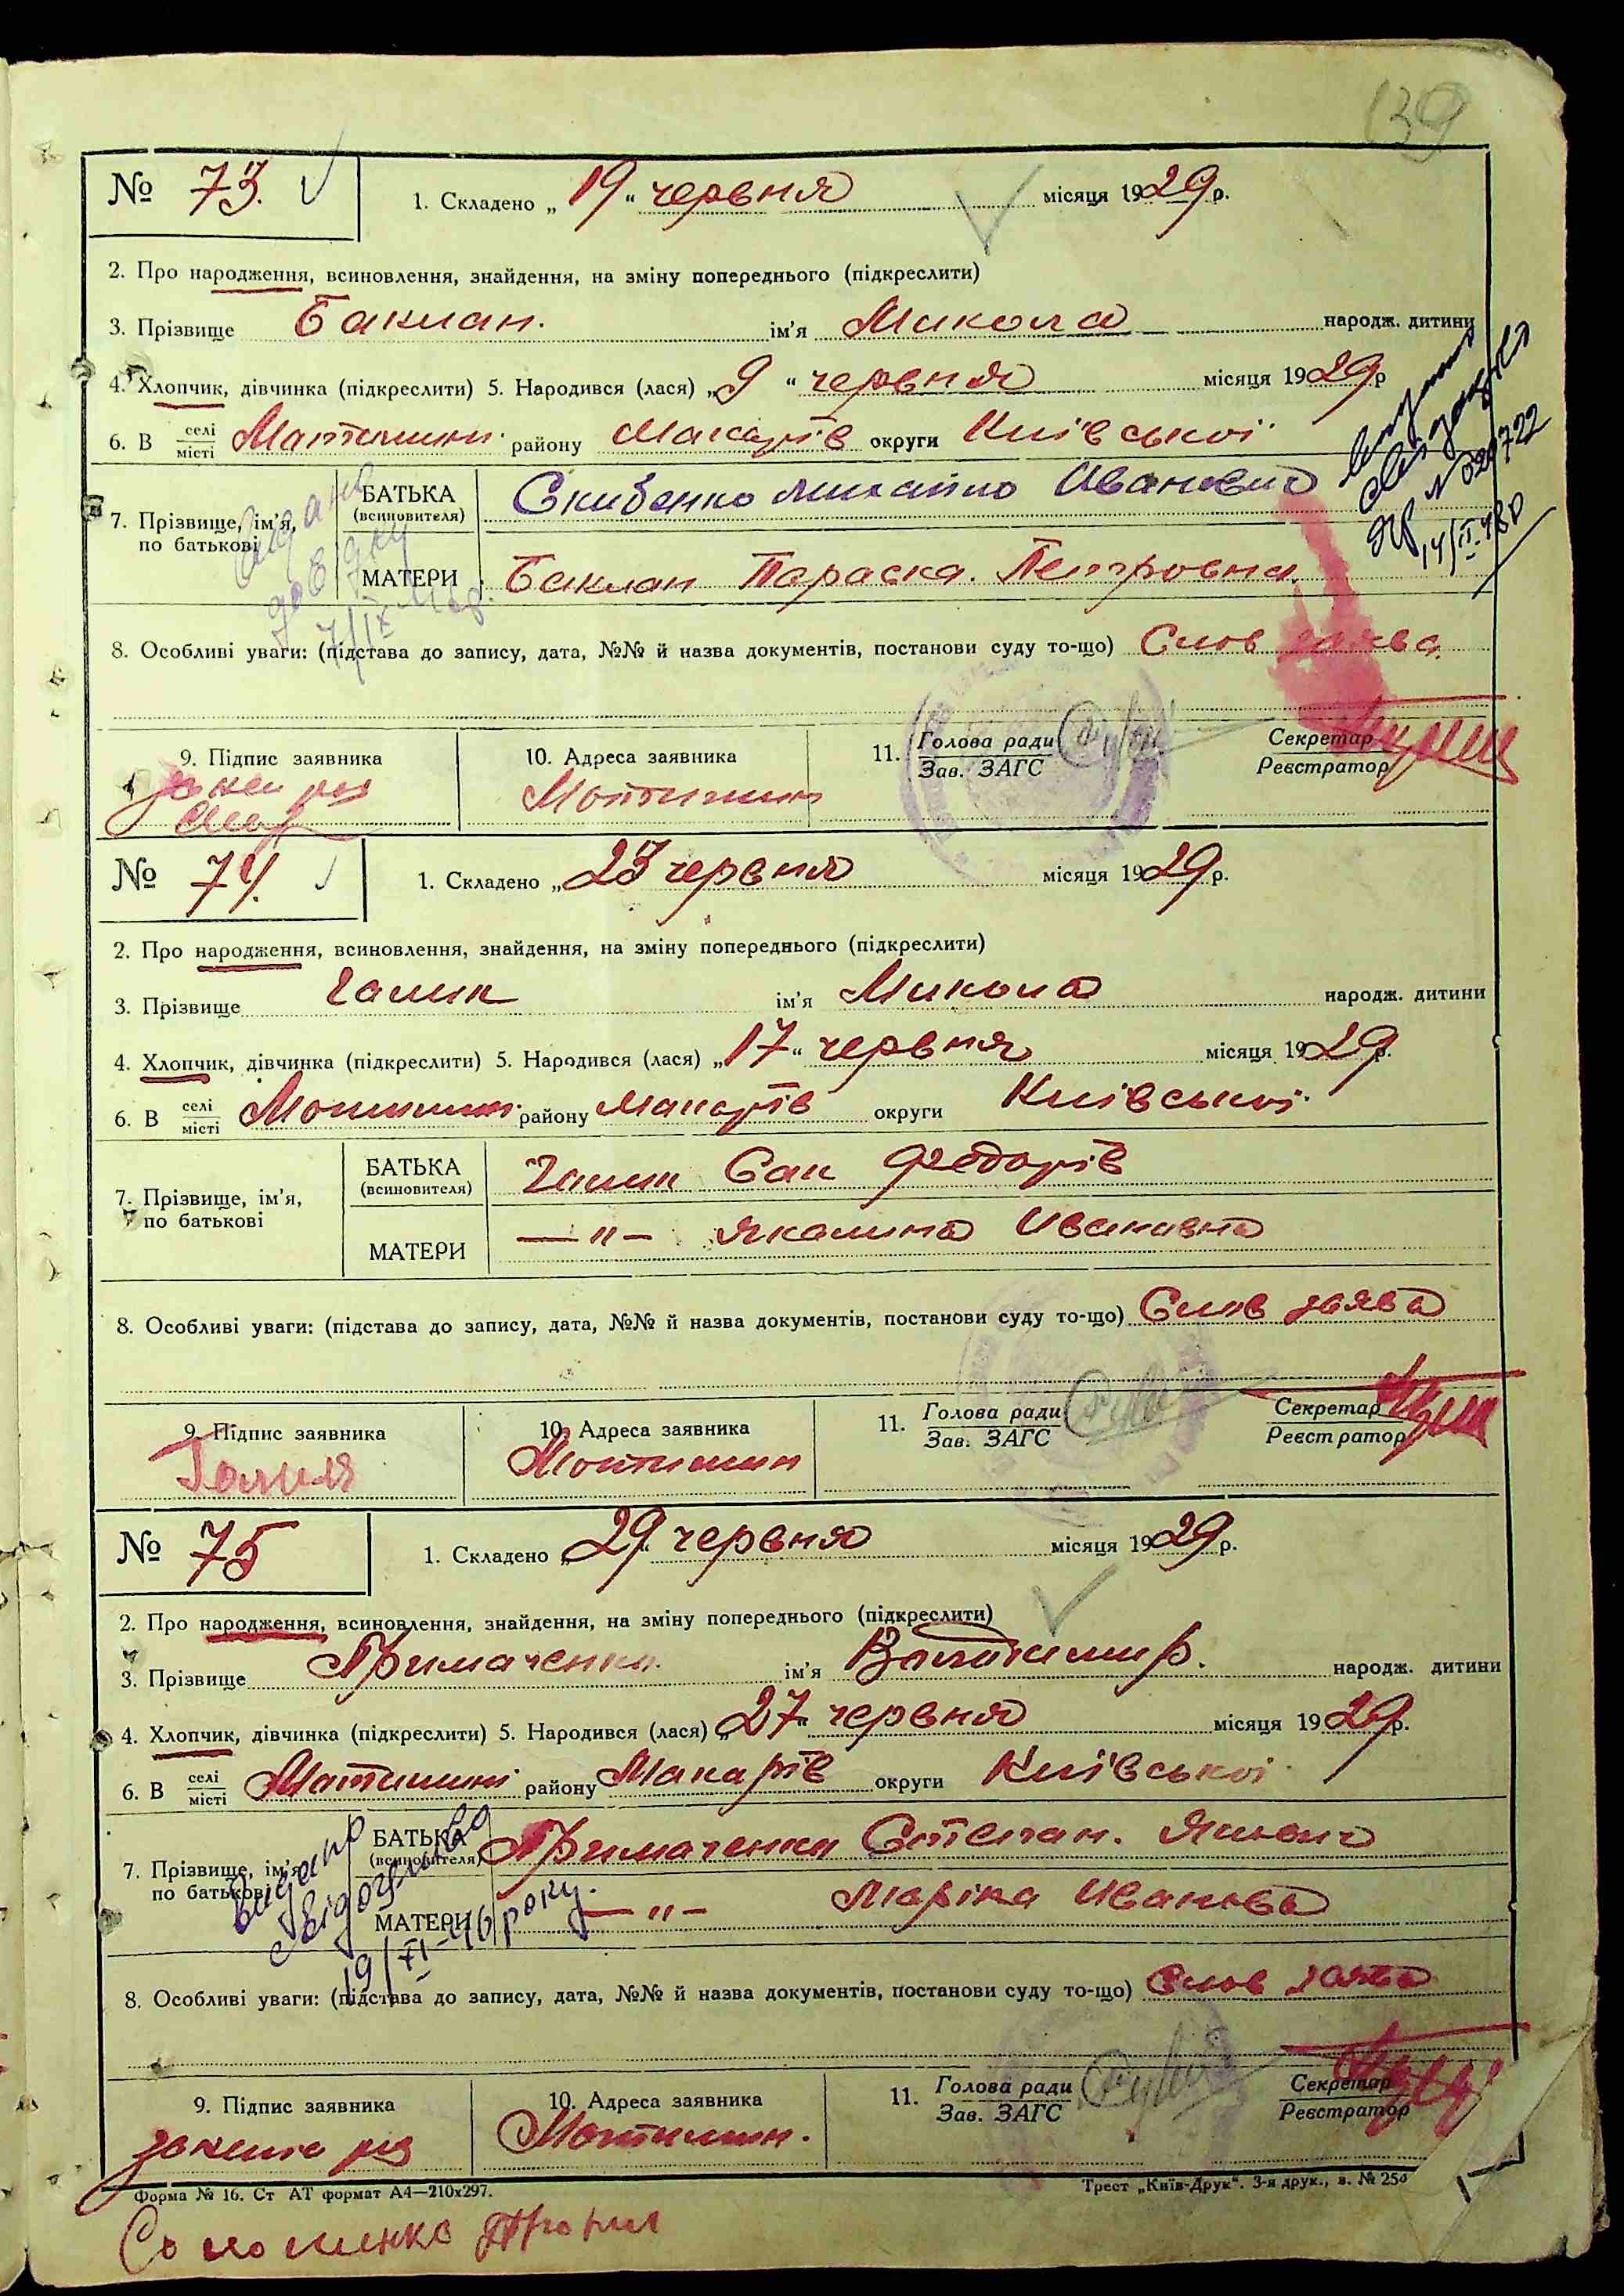 139
№ 73. 1. Складено „19“ червня місяця 1929 р.
2. Про народження, всиновлення, знайдення, на зміну попереднього (підкреслити)
3. Прізвище Баклан. ім'я Микола народж. дитини
4. Хлопчик, дівчинка (підкреслити) 5. Народився (лася) „9“ червня місяця 1929 р
6. В селі місті Мотижині району Макарів округи Київської
7. Прізвище, ім'я, по батькові
БАТЬКА (всиновителя) Скибенко Михайло Иванович
МАТЕРИ Баклан Параска. Петровна.
№ 020722
14/II-48 р
8. Особливі уваги: (підстава до запису, дата, №№ й назва документів, постанови суду то-що) Слов заява.
9. Підпис заявника
10. Адреса заявника
11. Голова ради Зав. ЗАГС
Секретар Реєстратор
Мотижин
№ 74. 1. Складено „23 червня місяця 1929 р.
2. Про народження, всиновлення, знайдення, на зміну попереднього (підкреслити)
3. Прізвище Галик ім'я Микола народж. дитини
4. Хлопчик, дівчинка (підкреслити) 5. Народився (лася) „17“ червня місяця 1929 р.
6. В селі місті Мотижині району Макарів округи Київської
7. Прізвище, ім'я, по батькові
БАТЬКА (всиновителя) Галик Сак Федорів
МАТЕРИ —"— Якалина Ивановна
8. Особливі уваги: (підстава до запису, дата, №№ й назва документів, постанови суду то-що) Слов заява
9. Підпис заявника
10. Адреса заявника
11. Голова ради Зав. ЗАГС
Секретар Реєстратор
Мотижин
№ 75 1. Складено „29“ червня місяця 1929 р.
2. Про народження, всиновлення, знайдення, на зміну попереднього (підкреслити)
3. Прізвище Примаченко ім'я Володимир. народж. дитини
4. Хлопчик, дівчинка (підкреслити) 5. Народився (лася) „27“ червня місяця 1929 р.
6. В селі місті Мотижині району Макарів округи Київської
7. Прізвище, ім'я, по батькові
БАТЬКА (всиновителя) Примаченко Степан.
МАТЕРИ —"— Маріка Иванова
видано
свідоцтво
19/XI-46 року.
8. Особливі уваги: (підстава до запису, дата, №№ й назва документів, постанови суду то-що) Слов заява
9. Підпис заявника
10. Адреса заявника
11. Голова ради Зав. ЗАГС
Секретар Реєстратор
Мотижин.
Форма № 16. Ст АТ формат А4—210х297.
Трест „Київ-Друк“. 3-я друк., з. № 250